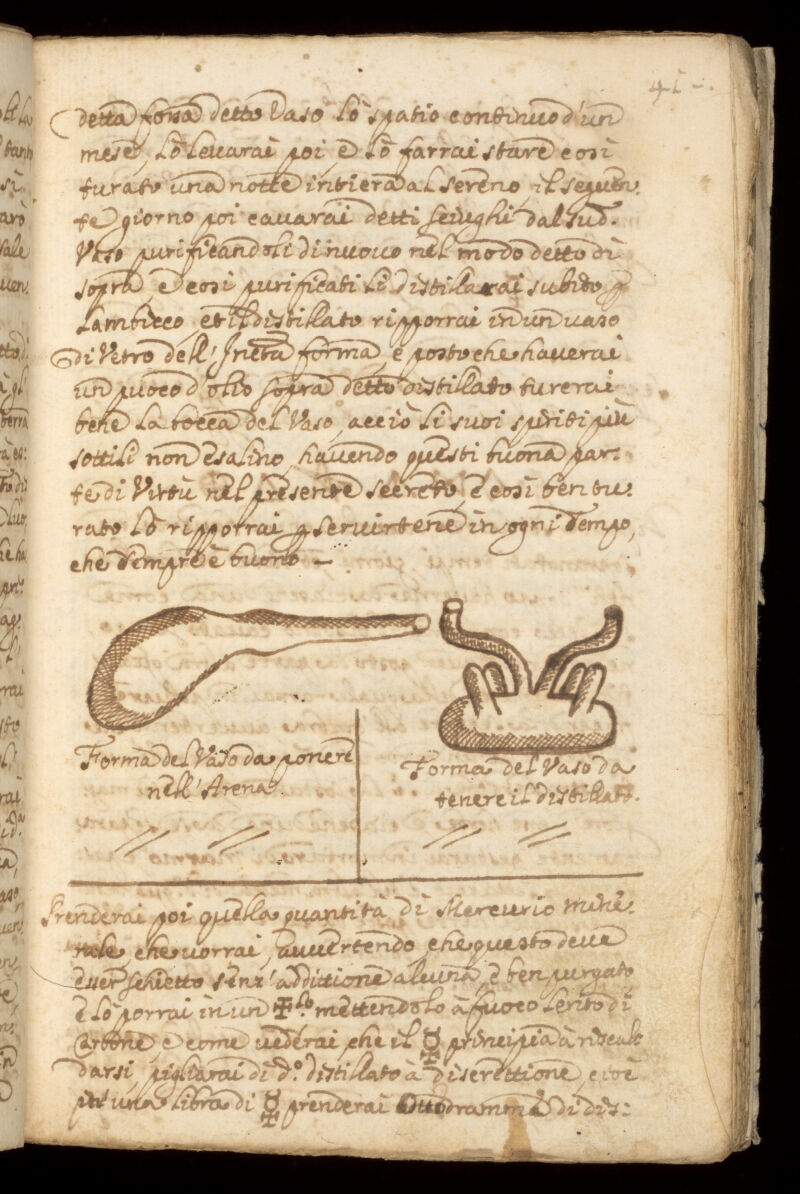 41
detta forma detto Vaso lò spatio continuo d'un
mese, lò levarai poi è lò farrai stare cosi
turato una notte intiera al sereno, il seguen:
te giorno poi cavarai detti seiughi dal sud.
Vaso purificandoli di nuovo nel modo detto di
sopra, è cosi purificati li distillarai subito p
Lambicco, et il distillato ripporrai in un vaso
di Vetro dell' forma, è posto che haverai
un puoco d'olio sopra detto distillato turerai
bene la bocca del Vaso, acciò li suoi spiriti più
sottili non esalino, havendo questi buona par:
te di Virtù nel presente secreto, è cosi ben tu:
rato lò ripporrai p servirtene in ogni tempo,
che sempre è buono
Forma del Vaso da ponere
nell' Arena.
Forma del Vaso da
tenere il distillato.
Prenderai poi quella quantità di Mercurio mine:
rale che vorrai, avvertendo che questo deve
esser schietto senz' addittione alcuna è ben purgato
è lò porrai in un mettendolo à fuoco lento di
Carbone, è come vederai che il ☿ principia à riscal:
darsi pigliarai di d.º distillato à discrettione, cioè
p una libra di ☿ prenderai otto dramme di dis: